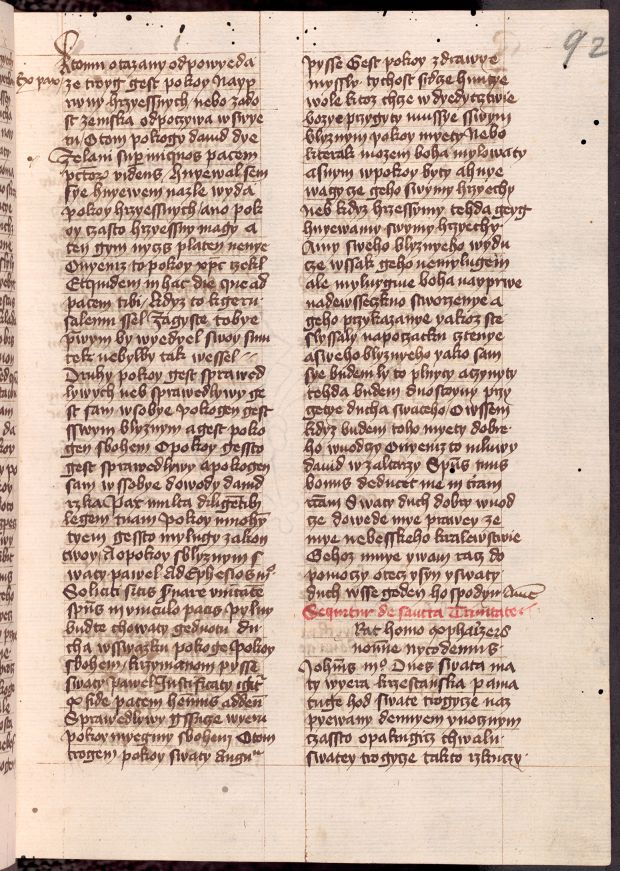 92
K tomu otazany odpowyeda
ze trogy gest pokoy Nayp
rwny hrzyessnych nebo zado
st zemska odpoczywa w swye
tu O tom pokogy dauid dye
Zelaui sup iniquos pacem
sye hnyewem nazle wyda
pokoy hrzyessnych ano pok
oy czasto hrzyessny magy a
ten gym nyczs platen nenye
O nyemz to pokoy xpc rzekl
Et quidem in hac die que ad
pacem tibi Kdyz to k geru
salemu ssel Zagyste to bye
prwym by wyedyel swoy smu
tek nebylby tak wessel
Druhy pokoy gest sprawed
lywych neb sprawedlywy ge
st sam w sobye pokogen gest
s swym blyznym a gest poko
gen s bohem O pokoy gessto
gest sprawedlywy a pokogen
sam w ssobye dowody dauid
rzka Pax multa diligentibus
legem tuam Pokoy mnohy
tyem gessto mylugy zakon
twoy A o pokoy s blyznym s
waty pawel Ad Ephesios
Soliciti sitis seruare unitatem
spus in vinculo pacis Pylny
budte chowaty gednotu du
cha w sswazku pokoge Pokoy
s bohem k rzymanom pysse
swaty pawel Justificati igitur
Sprawedlywy gssuce wyeru
pokoy myegmy s bohem O tom
trogem pokoy swaty augu
pysse Gest pokoy zdrawye
myssly tychost srdze
wole ktoz chze w dyedycztwie
bozye przygyty mussye s swym
blyznym pokoy myety Nebo
kterak mozem boha mylowaty
a s nym w pokoy byty a hnye
wagycze geho swymy hrzyechy
neb kdyz hrzessymy tehda geyg
hnyewamy swymy hrzyechy
Any sweho blyznyeho wydu
cze wssak geho nemylugem
ale mylugme boha nayprwe
nadewssyeczkno stworzenye a
geho przykazanye yakoz ste
slyssaly na poczatku cztenye
a sweho blyznyeho yako sam
sye budem ly to plnyty a czynyty
tehda budem duostoyny przy
getye ducha swateho O wssem
kdyz budem toho myety dobre
ho wuodczy O nyemz to mluwy
dauid w zaltarzy Sps tuus
bonus deducet me in terram
rectam Swaty duch dobry wuod
cze dowede mye prawey ze
mye nebesskeho kralewstwie
Gehoz mnye y wam racz do
pomoczy otecz y syn y swaty
duch wsse geden hospodyn Amen
Sequitur de sancta Trinitate
Erat homo ex phariseis
nomine nycodemus
Johannis Dnes swata ma
ty wyera krzestanska pama
tuge hod swate trogycze naz
pyewany dennyem y nocznym
czassto opakugicz chwalu
swatey trogycze takto rzkuczy